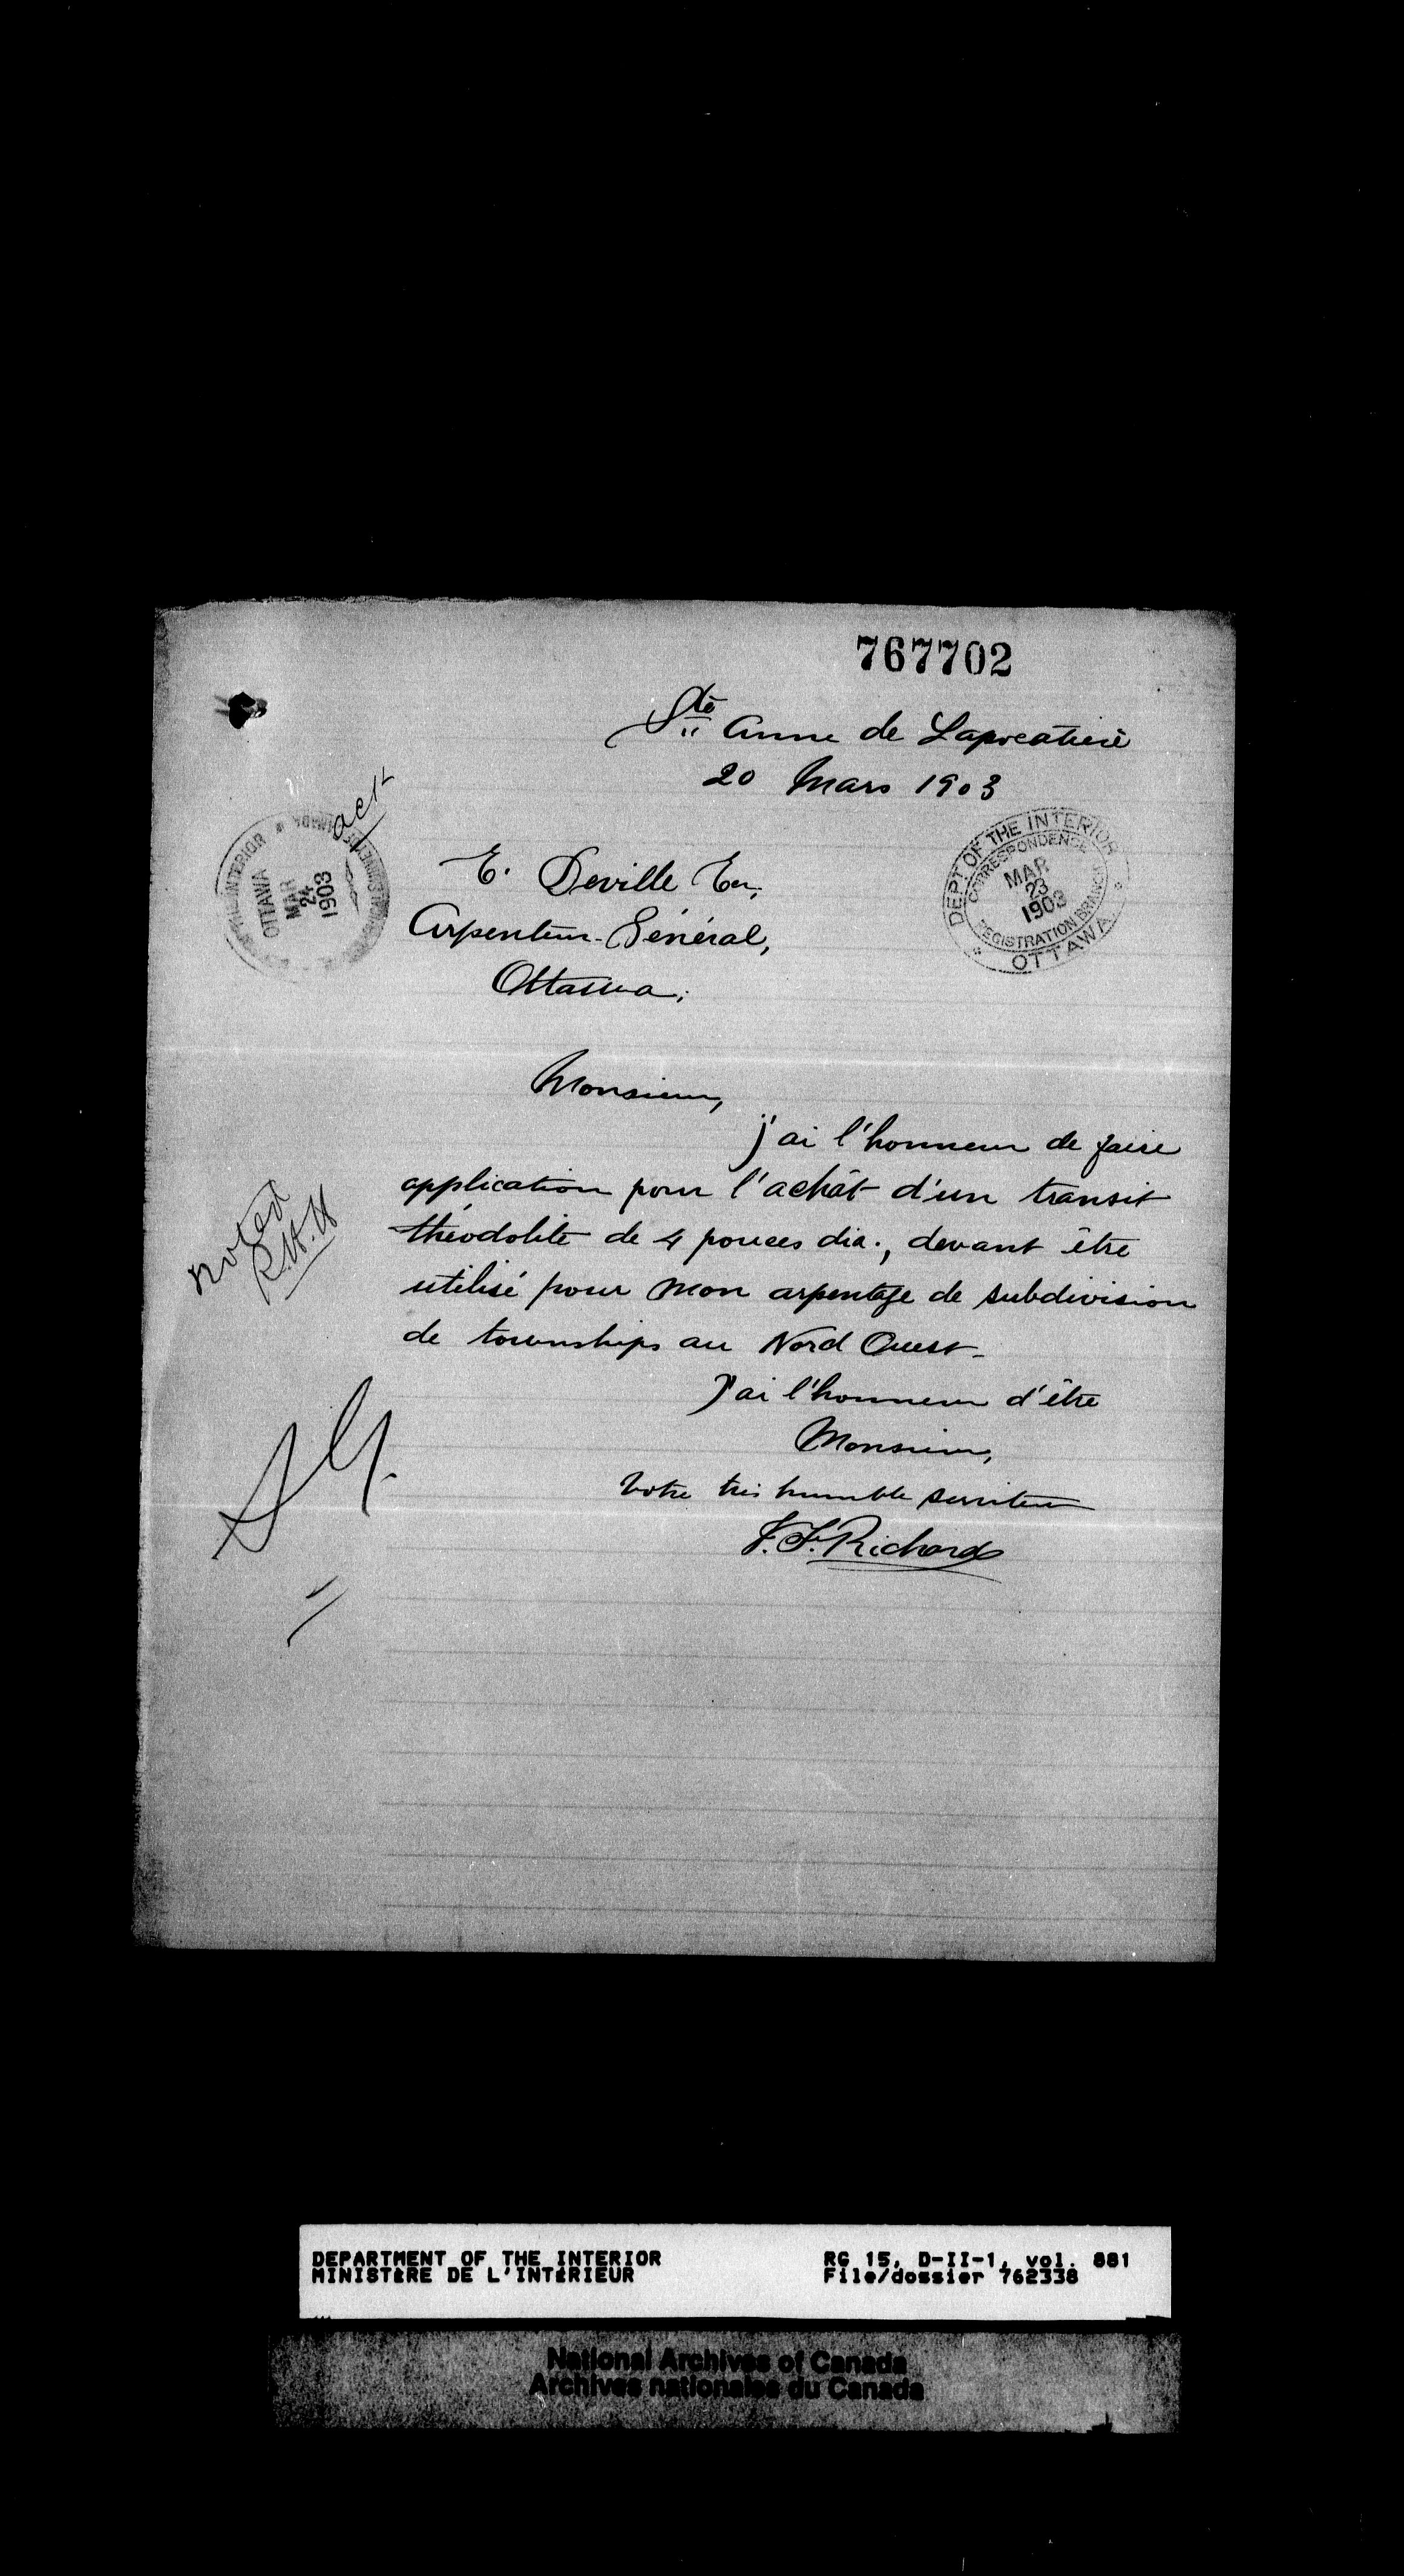 767702
Ste Anne de Lapocatière
20 Mars 1903
ack
OTTAWA
MAR
24
1903
DEPT OF THE INTERIOR
CORRESPONDENCE
MAR
23
1903
REGISTRATION BRANCH
OTTAWA
E. Deville Ecr,
Arpenteur-Général,
Ottawa,
Monsieur,
j'ai l'honneur de faire
application pour l'achât d'un transit
théodolite de 4 pouces dia., devant être
utilisé pour mon arpentage de subdivision
de townships au Nord Ouest-
J'ai l'honneur d'être
Monsieur,
Votre très humble serviteur
J. F. Richard
noted
DEPARTMENT OF THE INTERIOR
MINISTÈRE DE L'INTÉRIEUR
RG 15, D-II-1, vol. 881
File/dossier 762338
National Archives of Canada
Archives nationales du Canada